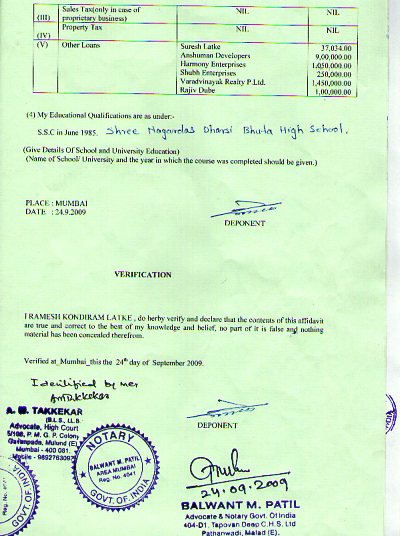 (III) Sales Tax(only in case of proprietary business) NIL NIL
(IV) Property Tax NIL NIL
(V) Other Loans Suresh Latke 37,034.00
Anshuman Developers 9,00,000.00
Harmony Enterprises 1,050,000.00
Shubh Enterprises 250,000.00
Varadvinayak Realty P.Ltd. 1,450,000.00
Rajiv Dube 1,00,000.00
(4) My Educational Qualifications are as under:-
S.S.C in June 1985. Shree Nagardas Dharsi Bhuta High School.
(Give Details Of School and University Education)
(Name of School/ University and the year in which the course was completed should be given.)
PLACE : MUMBAI
DATE : 24.9.2009
DEPONENT
VERIFICATION
I RAMESH KONDIRAM LATKE , do herby verify and declare that the contents of this affidavit
are true and correct to the best of my knowledge and belief, no part of it is false and nothing
material has been concealed therefrom.
Verified at_Mumbai_this the 24th day of September 2009.
Identified by me
AMTakkekar
A. M. TAKKEKAR
(B.L.S., LL.B.
Advocate, High Court
5/186, P. M. G. P. Colony
Mulund (E)
Mumbai - 400 081.
Mobile - 9892763097
NOTARY
BALWANT M. PATIL
AREA MUMBAI
Reg. No. 4041
GOVT. OF INDIA
DEPONENT
24.09.2009
BALWANT M. PATIL
Advocate & Notary Govt. Of India
404-D1, Tapovan Deep C.H.S. Ltd
Pathanwadi, Malad (E).